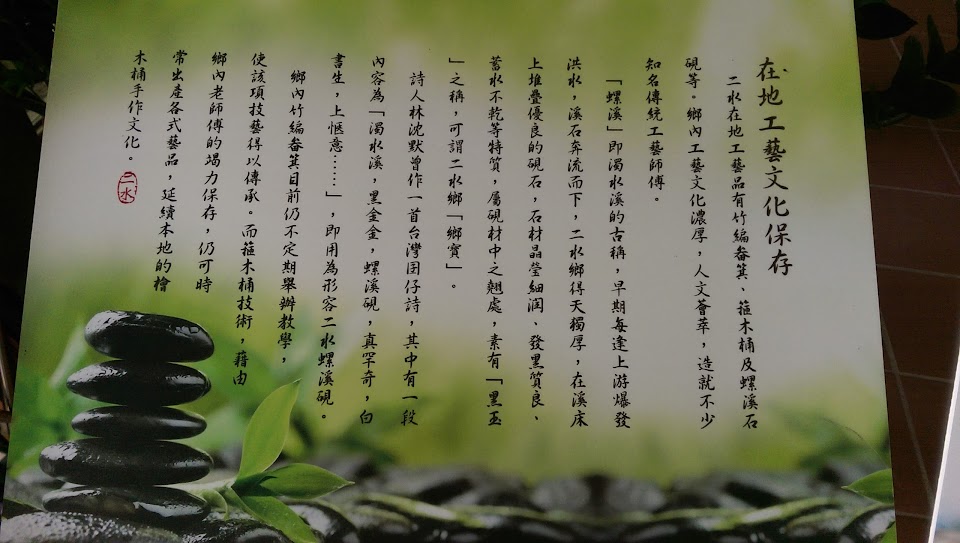 在地工藝文化保存
二水在地工藝品有竹編畚箕、箍木桶及螺溪石
硯等。鄉內工藝文化濃厚，人文薈萃，造就不少
知名傳統工藝師傅。
「螺溪」即濁水溪的古稱，早期每逢上游爆發
洪水，溪石奔流而下，二水鄉得天獨厚，在溪床
上堆疊優良的硯石，石材晶瑩細潤、發黑質良、
蓄水不乾等特質，屬硯材中之翹處，素有「黑玉
」之稱，可謂二水鄉「鄉寶」。
詩人林沈默曾作一首台灣囝仔詩，其中有一段
內容為「濁水溪，黑金金，螺溪硯，真罕奇，白
書生，上愜意……」，即用為形容二水螺溪硯。
鄉內竹編畚箕目前仍不定期舉辦教學，
使該項技藝得以傳承。而箍木桶技術，藉由
鄉內老師傅的竭力保存，仍可時
常出產各式藝品，延續本地的檜
木桶手作文化。
二水